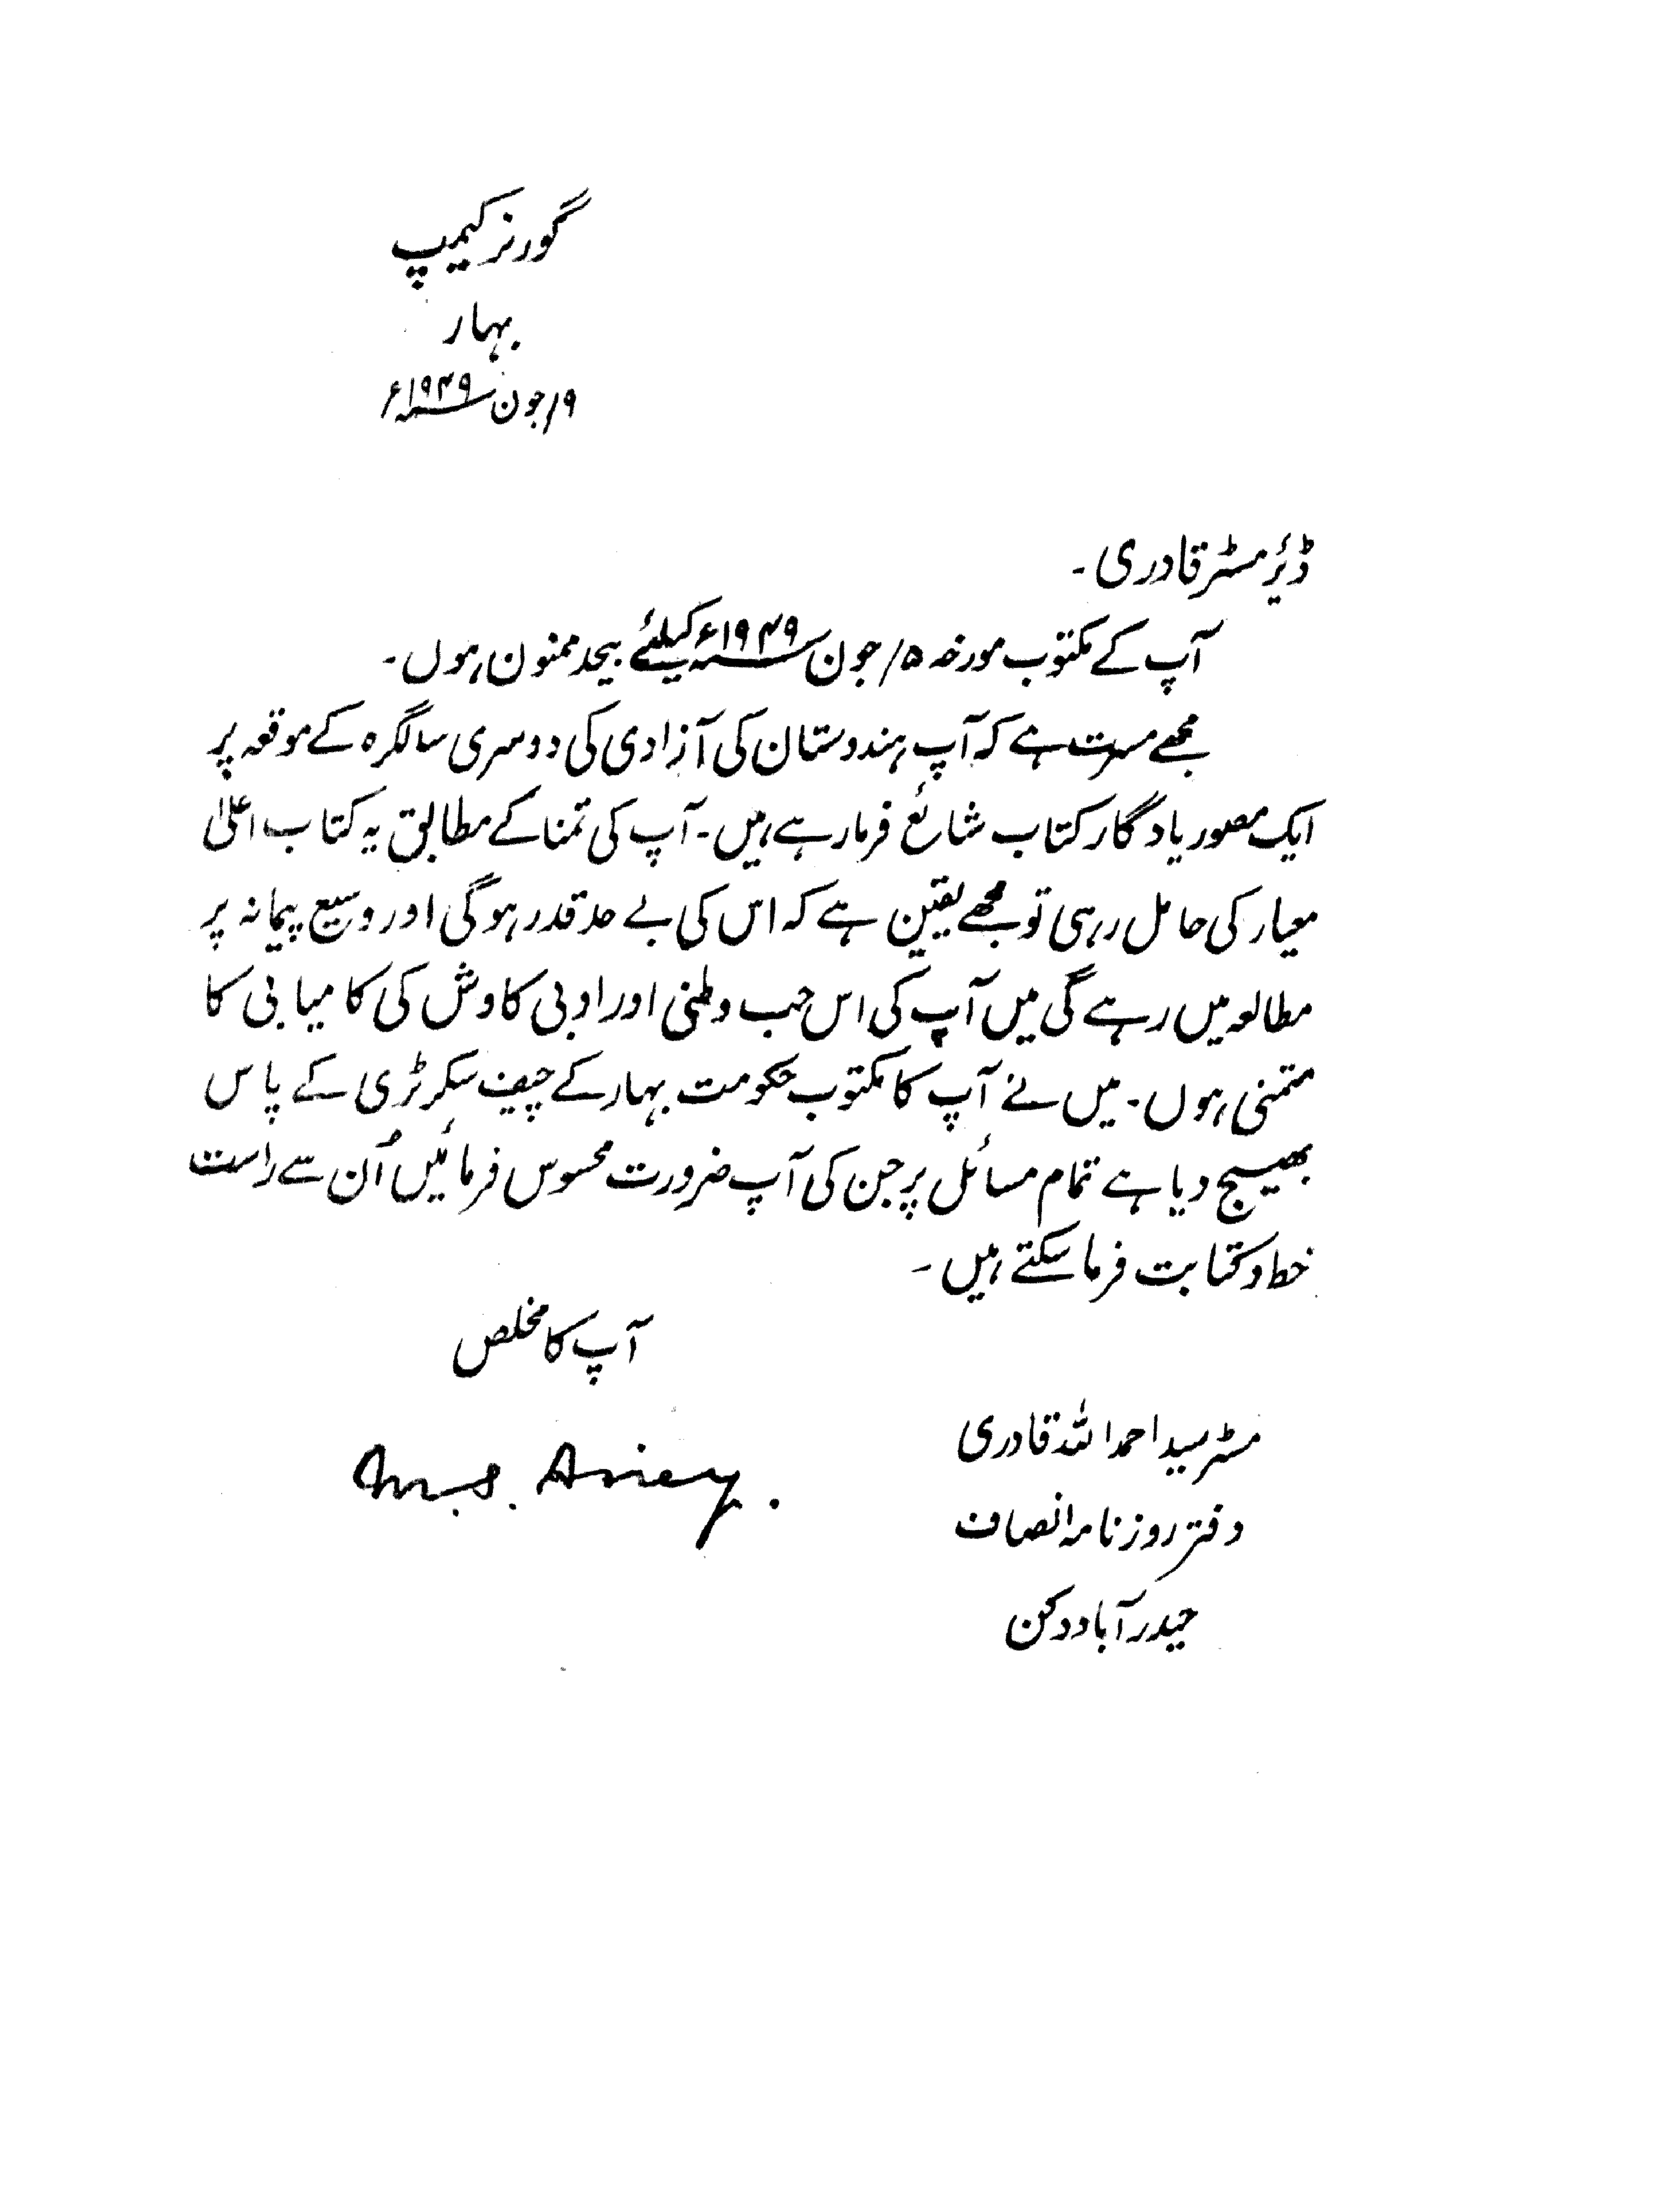 گورنر کیمپ
بہار
۹/جون ۱۹۴۹ء
ڈیر مسٹر قادری۔
آپ کے مکتوب مورخہ ۵/جون ۱۹۴۹ء کیلئے بیحد ممنون ہوں۔
مجھے مسرت ہے کہ آپ ہندوستان کی آزادی کی دوسری سالگرہ کے موقعہ پر
ایک مصور یادگار کتاب شائع فرما رہے ہیں۔ آپ کی تمنا کے مطابق یہ کتاب اعلیٰ
معیار کی حامل رہی تو مجھے یقین ہے کہ اس کی بے حد قدر ہوگی اور وسیع پیمانہ پر
مطالعہ میں رہے گی میں آپ کی اس حب وطنی اور ادبی کاوش کی کامیابی کا
متمنی ہوں۔ میں نے آپ کا مکتوب حکومت بہار کے چیف سکرٹری کے پاس
بھیج دیا ہے تمام مسائل پر جن کی آپ ضرورت محسوس فرمائیں اُن سے راست
خط و کتابت فرما سکتے ہیں۔
آپ کا مخلص
M.S. Aney.
مسٹر سید احمد اللہ قادری
دفتر روزنامہ انصاف
حیدرآباد دکن